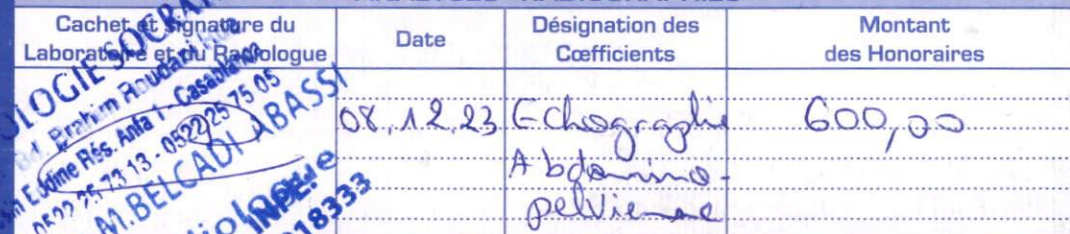 ANALYSES - RADIOGRAPHIES
Cachet et Signature du
Laboratoire et du Radiologue
Date
Désignation des
Cœfficients
Montant
des Honoraires
OLOGIE SOCRATE
Bd. Brahim Roudani
Rés. Anfa 1 - Casablanca
0522 25 73 13 - 0522 25 75 05
M.BELCADI ABASSI
INPE:
18333
08.12.23
Echographie
Abdomino-
pelvienne
600,00